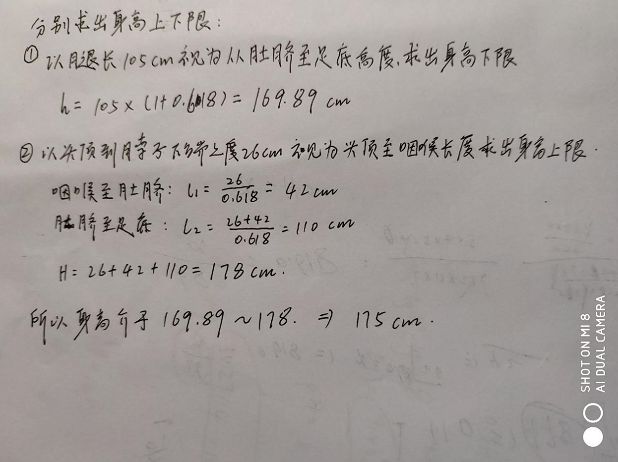 分别求出身高上下限:
① 以腿长105cm视为从肚脐至足底高度,求出身高下限
h = 105×(1+0.618) = 169.89 cm
② 以头顶到脖子下端之度26cm视为头顶至咽喉长度求出身高上限.
咽喉至肚脐: l₁ = 26/0.618 = 42cm
肚脐至足底: l₂ = (26+42)/0.618 = 110 cm
H = 26+42+110 = 178cm.
所以身高介于169.89~178. ⇒ 175cm.
SHOT ON MI 8
AI DUAL CAMERA